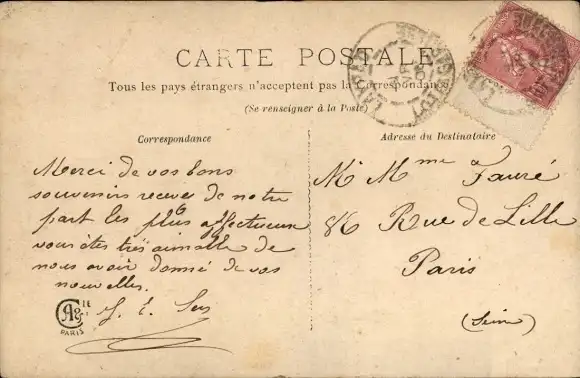 CARTE POSTALE
Tous les pays étrangers n'acceptent pas la Correspondance
(Se renseigner à la Poste)
Correspondance
Adresse du Destinataire
Merci de vos bons
souvenirs recevez de notre
part les plus affectueux
vous êtes très aimable de
nous avoir donné de vos
nouvelles.
Mr Mme Fauré
86 Rue de Lille
Paris
(Seine)
PARIS